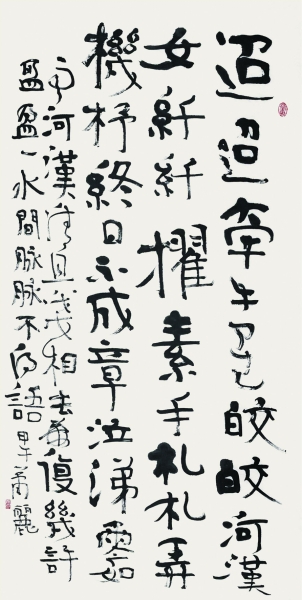 迢迢牽牛星皎皎河漢
女纤纤擢素手札札弄
機杼終日不成章泣涕零如
雨河漢清且浅相去復幾許
盈盈一水間脉脉不得語 甲午 麗